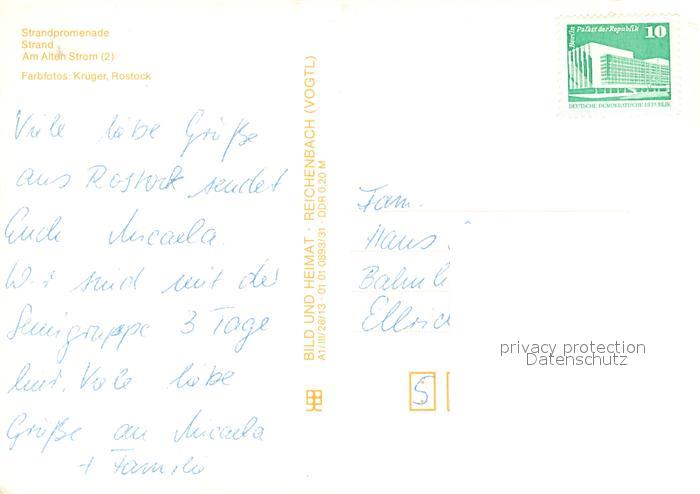 Strandpromenade
Strand
Am Alten Strom (2)
Farbfotos: Krüger, Rostock
Viele liebe Grüße
aus Rostock sendet
Euch Micaela.
Wir sind mit der
Semigruppe 3 Tage
hier. Viele liebe
Grüße an Micaela
+ Familie
BILD UND HEIMAT · REICHENBACH (VOGTL)
A1/III/26/13 01 01 0893/31 · DDR 0,20 M
Berlin Palast der Republik 10
DEUTSCHE DEMOKRATISCHE REPUBLIK
Fam.
Hans
Bahnh
Ellric
privacy protection
Datenschutz
5